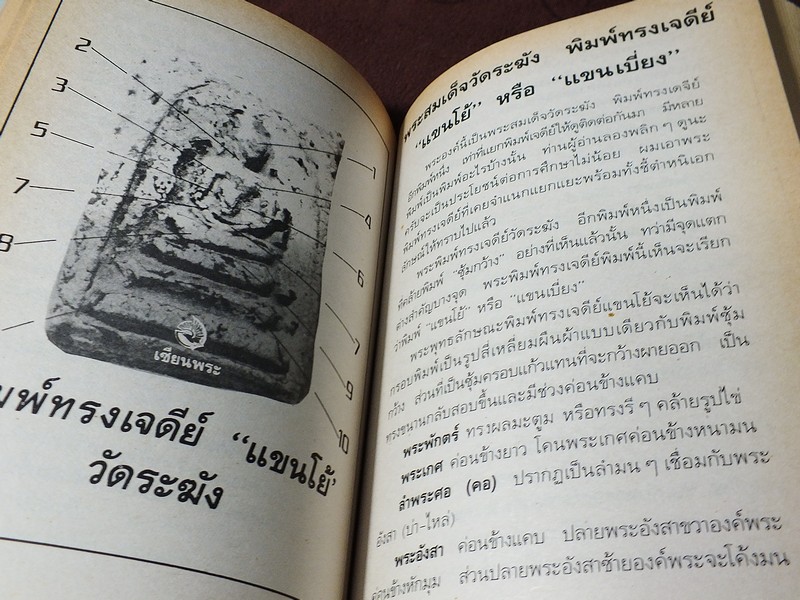 2
3
5
7
8
1
4
6
7
9
10
เซียนพระ
มพ์ทรงเจดีย์ “แขนโย้”
วัดระฆัง
พระสมเด็จวัดระฆัง พิมพ์ทรงเจดีย์
“แขนโย้” หรือ “แขนเบี่ยง”
พระองค์นี้เป็นพระสมเด็จวัดระฆัง พิมพ์ทรงเจดีย์
อีกพิมพ์หนึ่ง เท่าที่แยกพิมพ์เจดีย์ให้ดูติดต่อกันมา มีหลาย
พิมพ์เป็นพิมพ์อะไรบ้างนั้น ท่านผู้อ่านลองพลิก ๆ ดูนะ
ครับจะเป็นประโยชน์ต่อการศึกษาไม่น้อย ผมเอาพระ
พิมพ์ทรงเจดีย์ที่เคยจำแนกแยกแยะพร้อมทั้งชี้ตำหนิเอก
ลักษณ์ให้ทราบไปแล้ว
พระพิมพ์ทรงเจดีย์วัดระฆัง อีกพิมพ์หนึ่งเป็นพิมพ์
ที่คล้ายพิมพ์ “ซุ้มกว้าง” อย่างที่เห็นแล้วนั้น ทว่ามีจุดแตก
ต่างสำคัญบางจุด พระพิมพ์ทรงเจดีย์พิมพ์นี้เห็นจะเรียก
ว่าพิมพ์ “แขนโย้” หรือ “แขนเบี่ยง”
พระพุทธลักษณะพิมพ์ทรงเจดีย์แขนโย้จะเห็นได้ว่า
กรอบพิมพ์เป็นรูปสี่เหลี่ยมผืนผ้าแบบเดียวกับพิมพ์ซุ้ม
กว้าง ส่วนที่เป็นซุ้มครอบแก้วแทนที่จะกว้างผายออก เป็น
ทรงขนานกลับสอบขึ้นและมีช่วงค่อนข้างแคบ
พระพักตร์ ทรงผลมะตูม หรือทรงรี ๆ คล้ายรูปไข่
พระเกศ ค่อนข้างยาว โคนพระเกศค่อนข้างหนามน
ลำพระศอ (คอ) ปรากฏเป็นลำมน ๆ เชื่อมกับพระ
อังสา (บ่า-ไหล่)
พระอังสา ค่อนข้างแคบ ปลายพระอังสาขวาองค์พระ
ค่อนข้างหักมุม ส่วนปลายพระอังสาซ้ายองค์พระจะโค้งมน